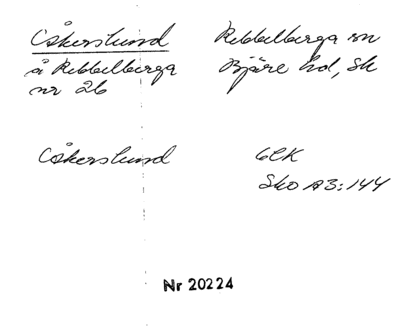 Åkerslund
å Rebbelberga
nr 26
Rebbelberga sn
Bjäre hd, Sk
Åkerslund
GEK
Sko A3:144
Nr 20224